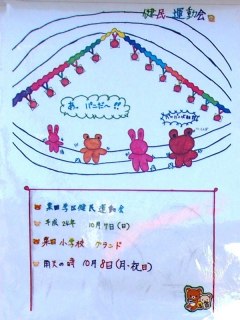 健民運動会
あ、パン だ〜!!
栗田学区健民運動会
平成24年 10月7日(日)
栗田小学校 グランド
雨天の時 10月8日(月・祝日)